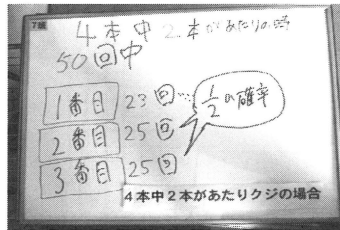 7班
4本中2本があたりの時
50回中
1番目 23回…
2番目 25回
3番目 25回
1/2の確率
4本中2本があたりクジの場合